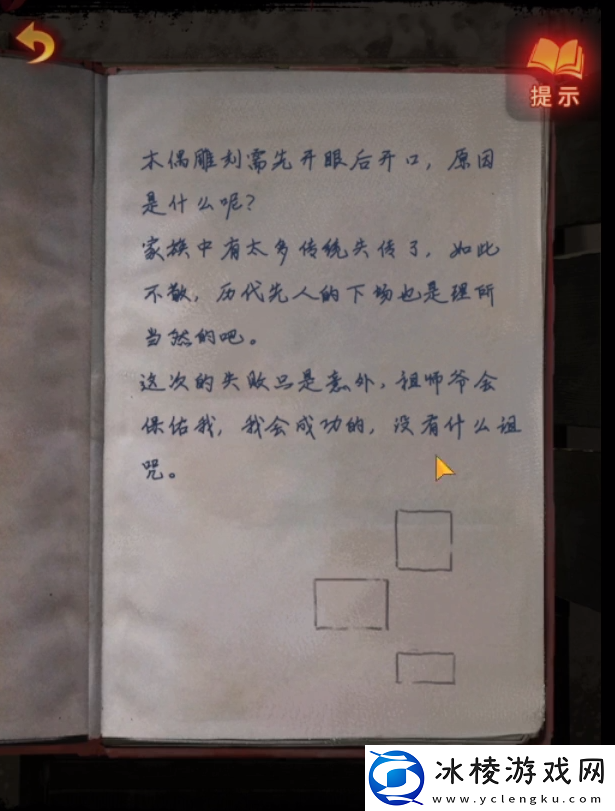 提示
木偶雕刻需先开眼后开口，原因
是什么呢？
家族中有太多传统失传了，如此
不敬，历代先人的下场也是理所
当然的吧。
这次的失败只是意外，祖师爷会
保佑我，我会成功的，没有什么诅
咒。
冰棱游戏网
www.yclengku.com